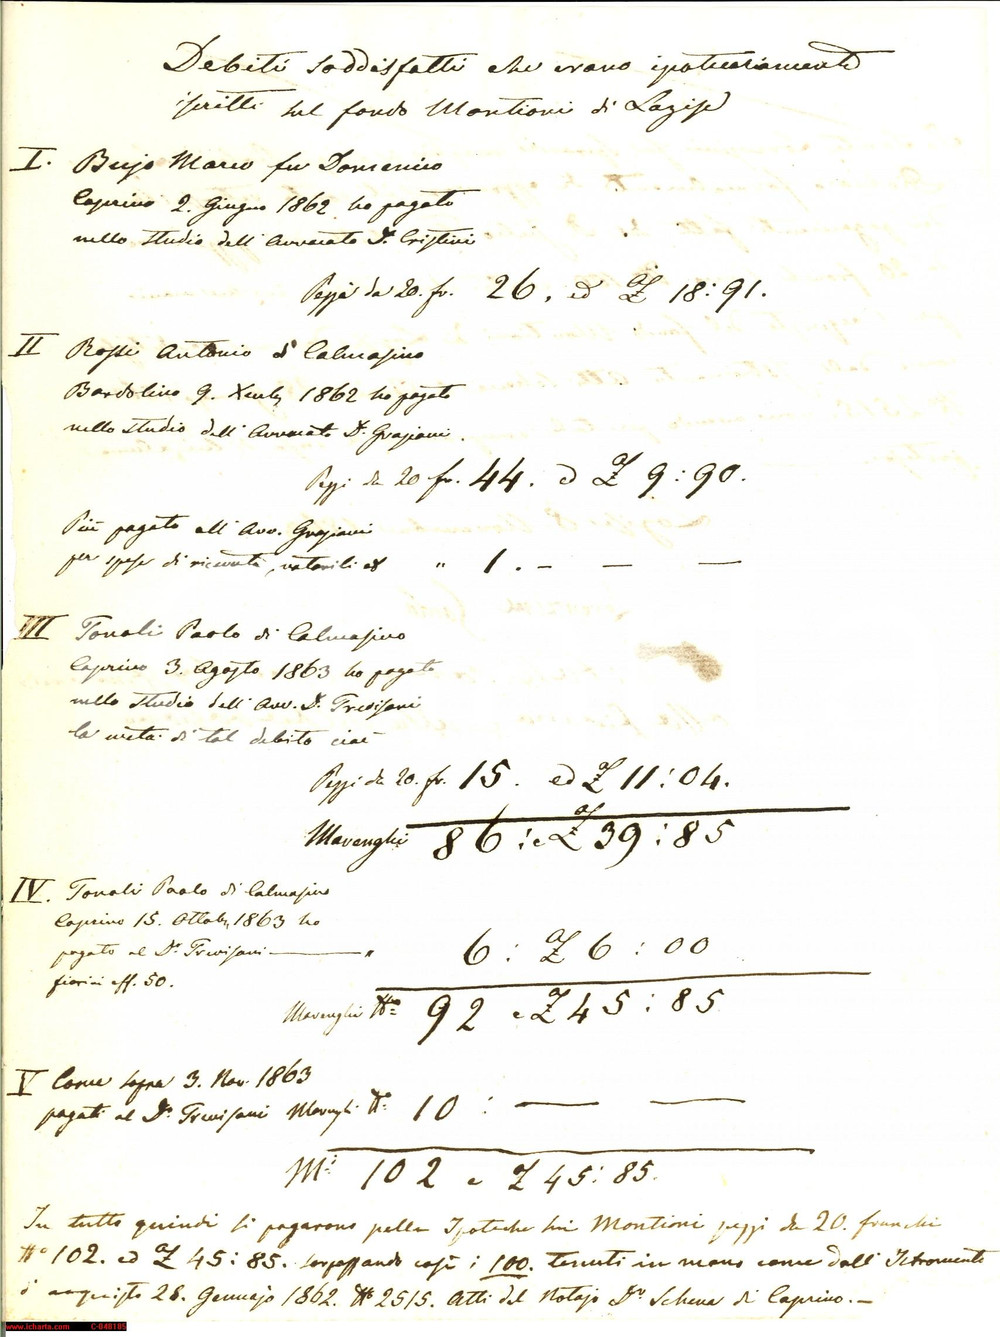 Debiti soddisfatti che erano ipotecariamente
iscritti sul fondo Montioni di Lazise
I. Marco fu Domenico
Caprino 2. Giugno 1862 ho pagato
nello studio dell'Avvocato Dr. Cristini
Pezzi da 20. fr. 26. ed £ 18:91.
II Rossi Antonio di Calmasino
Bardolino 9. Xcmbre 1862 ho pagato
nello studio dell'Avvocato Dr. Graziani.
Pezzi da 20 fr. 44. ed £ 9:90.
Più pagato all'Avv. Graziani
per spese di ricevuta, notarili ed " 1. – — —
III Tonoli Paolo di Calmasino
Caprino 3. Agosto 1863 ho pagato
nello studio dell'Avv. Dr. Trevisani
la metà di tal debito cioè
Pezzi da 20. fr. 15. ed £ 11:04.
Marenghi 86: e £ 39:85
IV. Tonoli Paolo di Calmasino
Caprino 15. Ottobre 1863 ho
pagato al Dr. Trevisani — " 6: £ 6:00
fiorini eff. 50.
Marenghi No. 92 e £ 45:85
V Come sopra 3. Nov. 1863
pagati al Dr. Trevisani Marenghi No. 10: — —
M.i 102 e £ 45:85.
In tutto quindi si pagarono pelle Ipoteche sui Montioni pezzi da 20. franchi
No 102. ed £ 45:85. sorpassando così i 100. tenuti in mano come dall'Istromento
d'acquisto 26. Gennajo 1862. No. 2515. Atti del Notajo Dr. Schena di Caprino. –
www.icharta.com C-040105